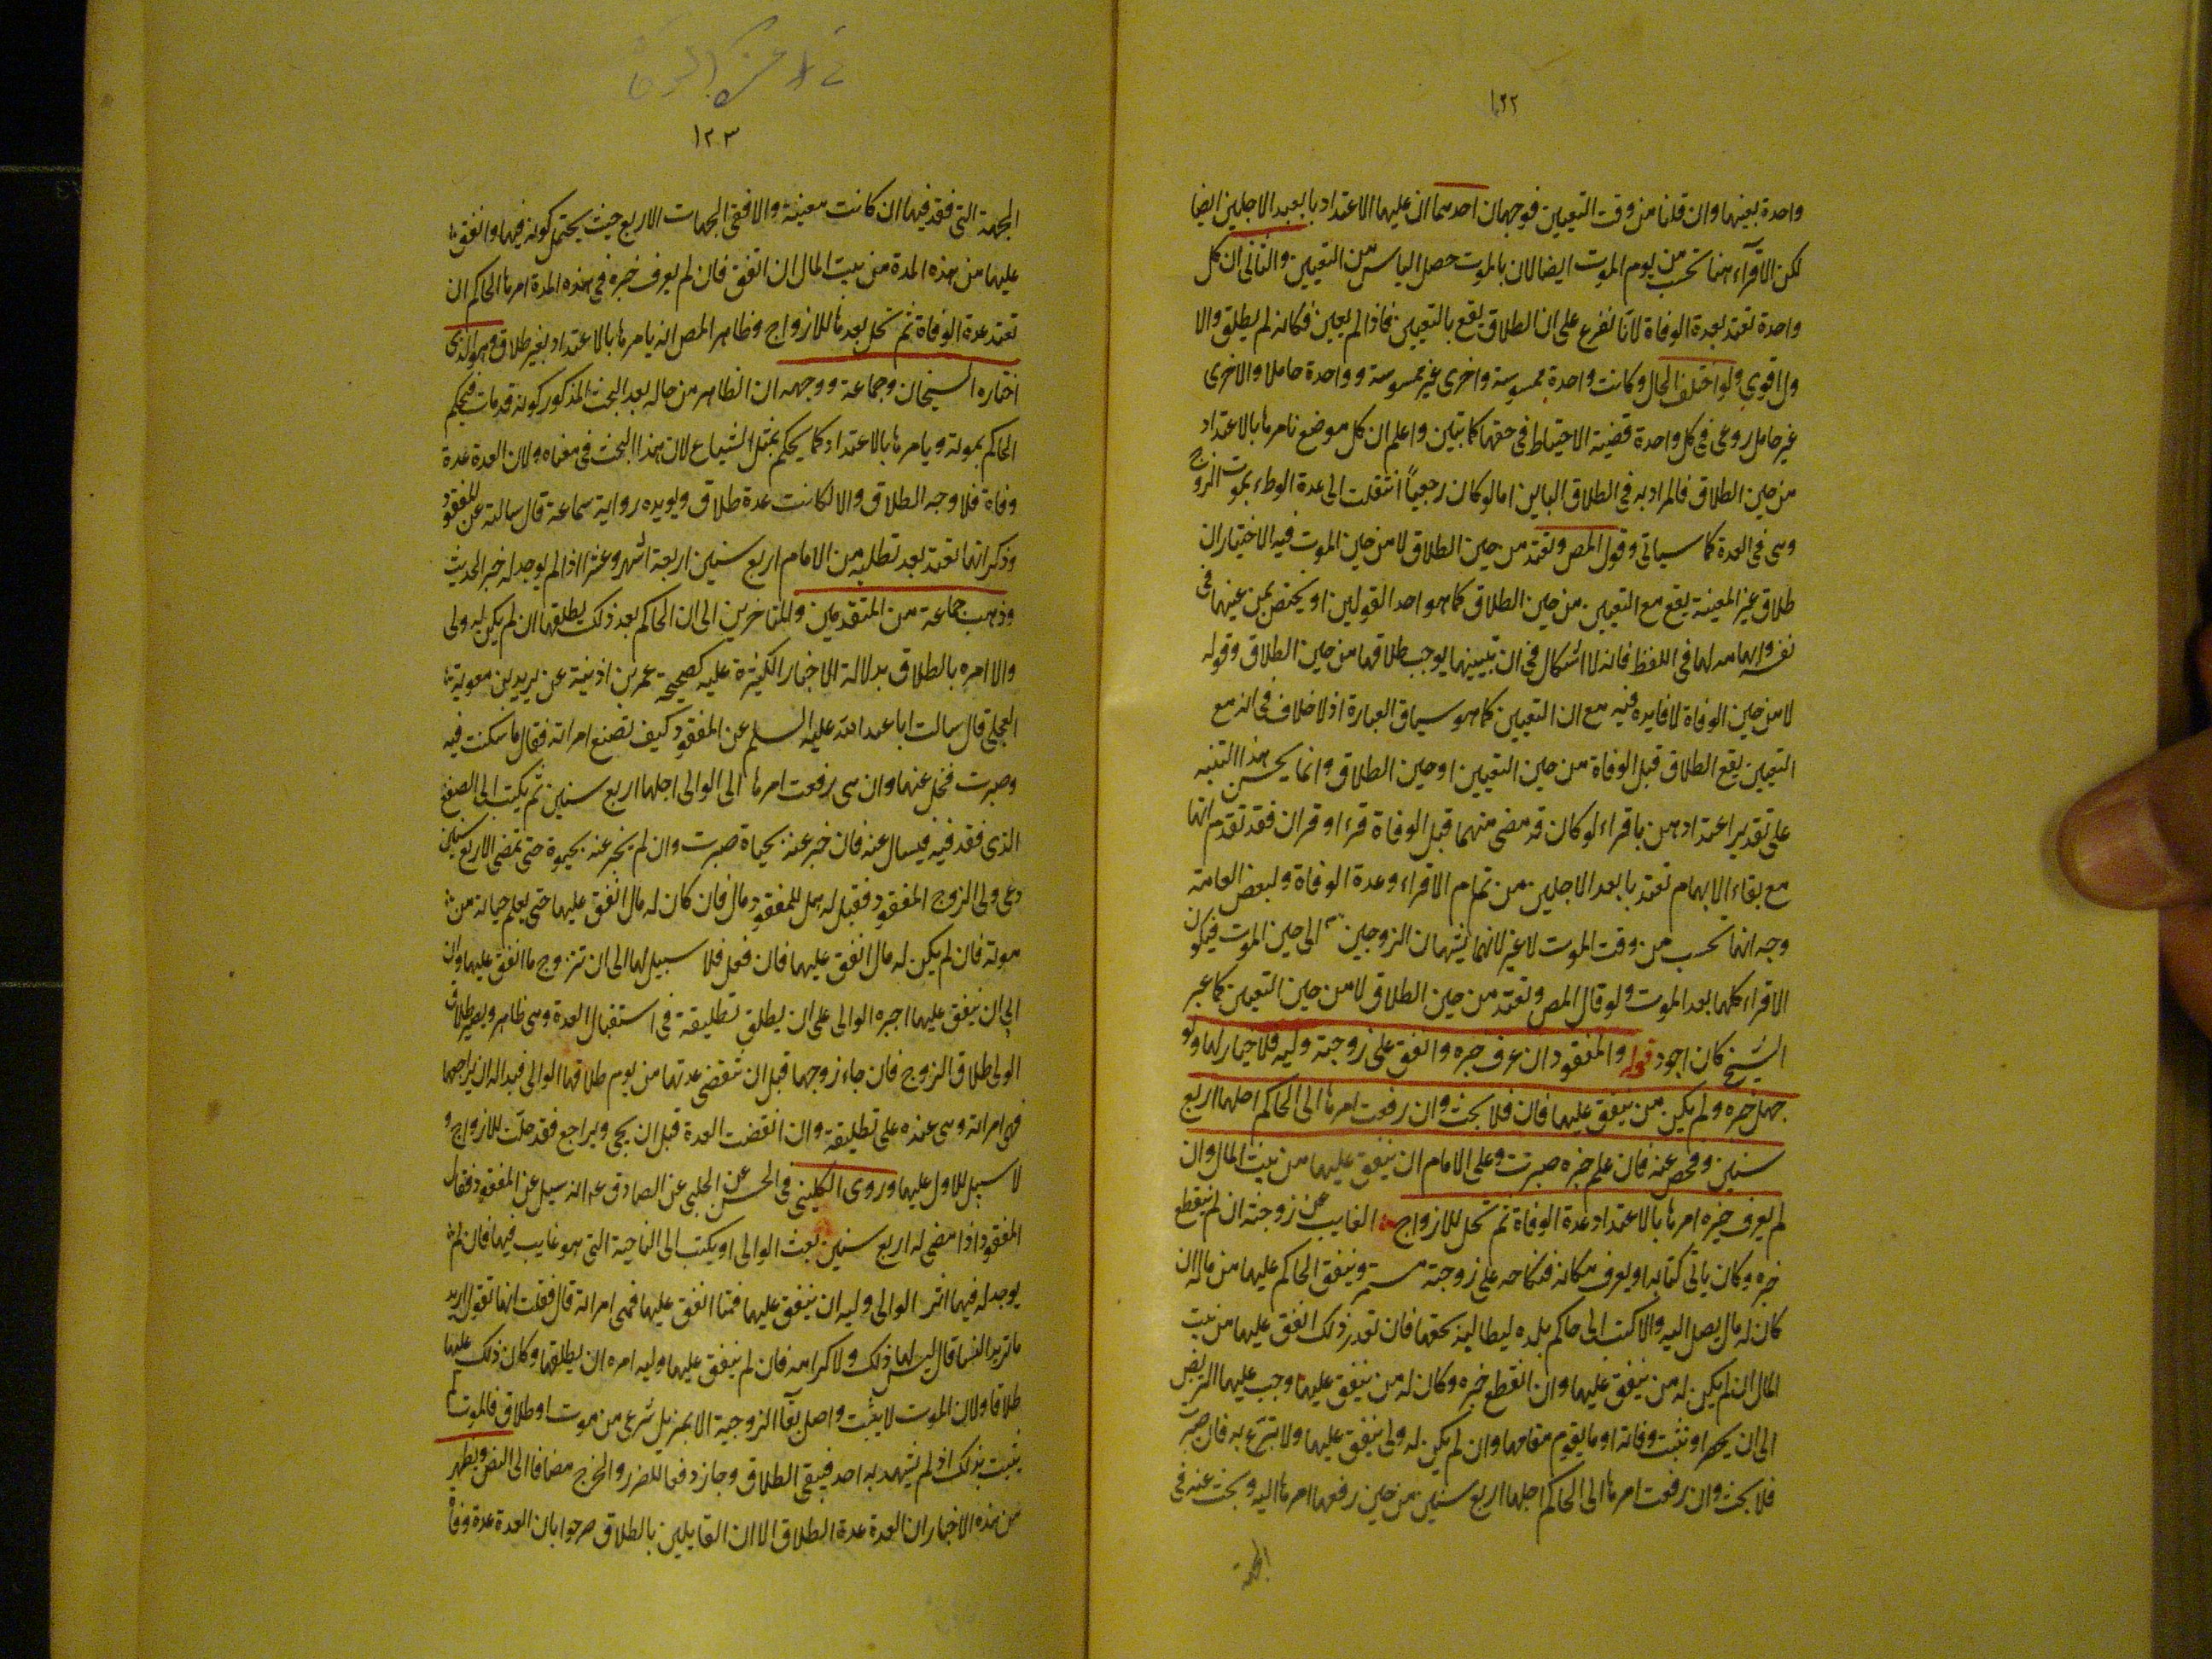 ١٢٢
واحدة بعينها وان قلنا من وقت التعيين فوجهان احدهما ان عليها الاعتداد بابعد الاجلين ايضا
لكن الاقرآء هنا تحسب من يوم الموت ايضا لان بالموت حصل الياس من التعيين والثانى ان كل
واحدة تعتد بعدة الوفاة لانا نفرع على ان الطلاق يقع بالتعيين فاذا لم يعين فكانه لم يطلق والا
ول اقوى ولو اختلف الحال وكانت واحدة ممسوسة واخرى غير ممسوسة وواحدة حاملا والاخرى
غير حامل روعى فى كل واحدة قضية الاحتياط فى حقها كما تبين واعلم ان كل موضع نامرها بالاعتداد
من حين الطلاق فالمراد به فى الطلاق الباين اما لو كان رجعياً انتقلت الى عدة الوطء بموت الزوج
وهى فى العدة كما سياتى وقول المص وتعتد من حين الطلاق لا من حين الموت فيه الاختيار ان
طلاق غير المعينة يقع مع التعيين من حين الطلاق كما هو احد القولين او يختص بمن عينها فى
نفسه وابهامه لها فى اللفظ فانه لا اشكال فى ان تبيينها يوجب طلاقها من حين الطلاق وقوله
لا من حين الوفاة لا فايده فيه مع ان التعيين كما هو سياق العبارة اذ لا خلاف فى انه مع
التعيين يقع الطلاق قبل الوفاة من حين التعيين او حين الطلاق وانما يحسن هذا التنبيه
على تقدير اعتدادهن باقراء لو كان قد مضى منهما قبل الوفاة قرء او قران فقد تقدم انها
مع بقاء الابهام تعتد بابعد الاجلين من تمام الاقراء وعدة الوفاة ولبعض العامة
وجه انها تحسب من وقت الموت لا غير لانهما يشبهان الزوجين الى حين الموت فيكون
الاقراء كلها بعد الموت ولو قال المص وتعتد من حين الطلاق لا من حين التعيين كما عبر
الشيخ كان اجود قوله والمفقود ان عرف خبره وانفق على زوجته وليه فلا خيار لها ولو
جهل خبره ولم يكن من ينفق عليها فان فلا بحث وان رفعت امرها الى الحاكم اجلها اربع
سنين وفحص عنه فان علم خبره صبرت وعلى الامام ان ينفق عليها من بيت المال وان
لم يعرف خبره امرها بالاعتداد عدة الوفاة ثم تحل للازواج الغايب عن زوجته ان لم ينقطع
خبره وكان ياتى كتابه او يعرف مكانه فنكاحه على زوجته مستمر وينفق الحاكم عليها من ماله ان
كان له مال يصل اليه والا كتب الى حاكم بلده ليطالبه بحقها فان تعذر ذلك انفق عليها من بيت
المال ان لم يكن له من ينفق عليها وان انقطع خبره وكان له من ينفق عليها وجب عليها التربص
الى ان يحضر او تثبت وفاته او ما يقوم مقامها وان لم يكن له ولى ينفق عليها ولا متبرع به فان صبرت
فلا بحث وان رفعت امرها الى الحاكم اجلها اربع سنين من حين رفعها امرها اليه وبحث عنه فى
الجهة
١٢٣
الجهة التى فقد فيها ان كانت معينة والا ففى الجهات الاربع حيث يحتمل كونه فيها وانفق
عليها من هذه المدة من بيت المال ان اتفق فان لم يعرف خبره فى هذه المدة امرها الحاكم ان
تعتد عدة الوفاة ثم تحل بعدها للازواج وظاهر المص انه يامرها بالاعتداد بغير طلاق وهو الذى
اختاره الشيخان وجماعة ووجهه ان الظاهر من حاله بعد البحث المذكور كونه قد مات فيحكم
الحاكم بموته ويامرها بالاعتداد كما يحكم بمثل الشياع لان هذا البحث فى معناه ولان العدة عدة
وفاة فلا وجه للطلاق والا لكانت عدة طلاق ويويده رواية سماعة قال سالته عن المفقود
وذكر انها تعتد بعد تطلبه من الامام اربع سنين اربعة اشهر وعشرا اذا لم يوجد له خبر الحديث
وذهب جماعة من المتقدمين والمتاخرين الى ان الحاكم بعد ذلك يطلقها ان لم يكن له ولى
والا امره بالطلاق بدلالة الاخبار الكثيرة عليه كصحيحة عمر بن اذينة عن بريد بن معوية
العجلى قال سالت ابا عبد الله عليه السلم عن المفقود كيف تصنع امراته فقال ما سكتت فيه
وصبرت فخل عنها وان هى رفعت امرها الى الوالى اجلها اربع سنين ثم يكتب الى الصقع
الذى فقد فيه فيسال عنه فان خبر عنه بحياة صبرت وان لم يخبر عنه بحيوة حتى تمضى الاربع سنين
دعى ولى الزوج المفقود فقيل له هل للمفقود مال فان كان له مال انفق عليها حتى يعلم حياته من
موته فان لم يكن له مال انفق عليها فان فعل فلا سبيل لها الى ان تتزوج ما انفق عليها وان
ابى ان ينفق عليها اجبره الوالى على ان يطلق تطليقة فى استقبال العدة وهى طاهر ويصير طلاق
الولى طلاق الزوج فان جاء زوجها قبل ان تنقضى عدتها من يوم طلاقها الوالى فبدا له ان يراجعها
فهى امراته وهى عنده على تطليقة وان انقضت العدة قبل ان يجى ويراجع فقد حلت للازواج و
لا سبيل للاول عليها وروى الكلينى فى الحسن عن الحلبى عن الصادق ع انه سيل عن المفقود فقال
المفقود اذا مضى له اربع سنين بعث الوالى او يكتب الى الناحية التى هو غايب فيها فان لم
يوجد له فيها اثر امر الوالى وليه ان ينفق عليها فما انفق عليها فهى امراته قال فقلت انها تقول اريد
ما تريد النسا قال ليس لها ذلك ولا كرامه فان لم ينفق عليها وليه امره ان يطلقها وكان ذلك عليها
طلاقا ولان الموت لا يثبت واصل بقآ الزوجية الا بمزيل شرعى من موت او طلاق فالموت لم
يثبت بذلك اذ لم يشهد به احد فيبقى الطلاق وجاز دفعا للضرر والحرج مضافا الى النص ويظهر
من هذه الاخبار ان العدة عدة الطلاق الا ان القايلين بالطلاق صرحوا بان العدة عدة وفاة